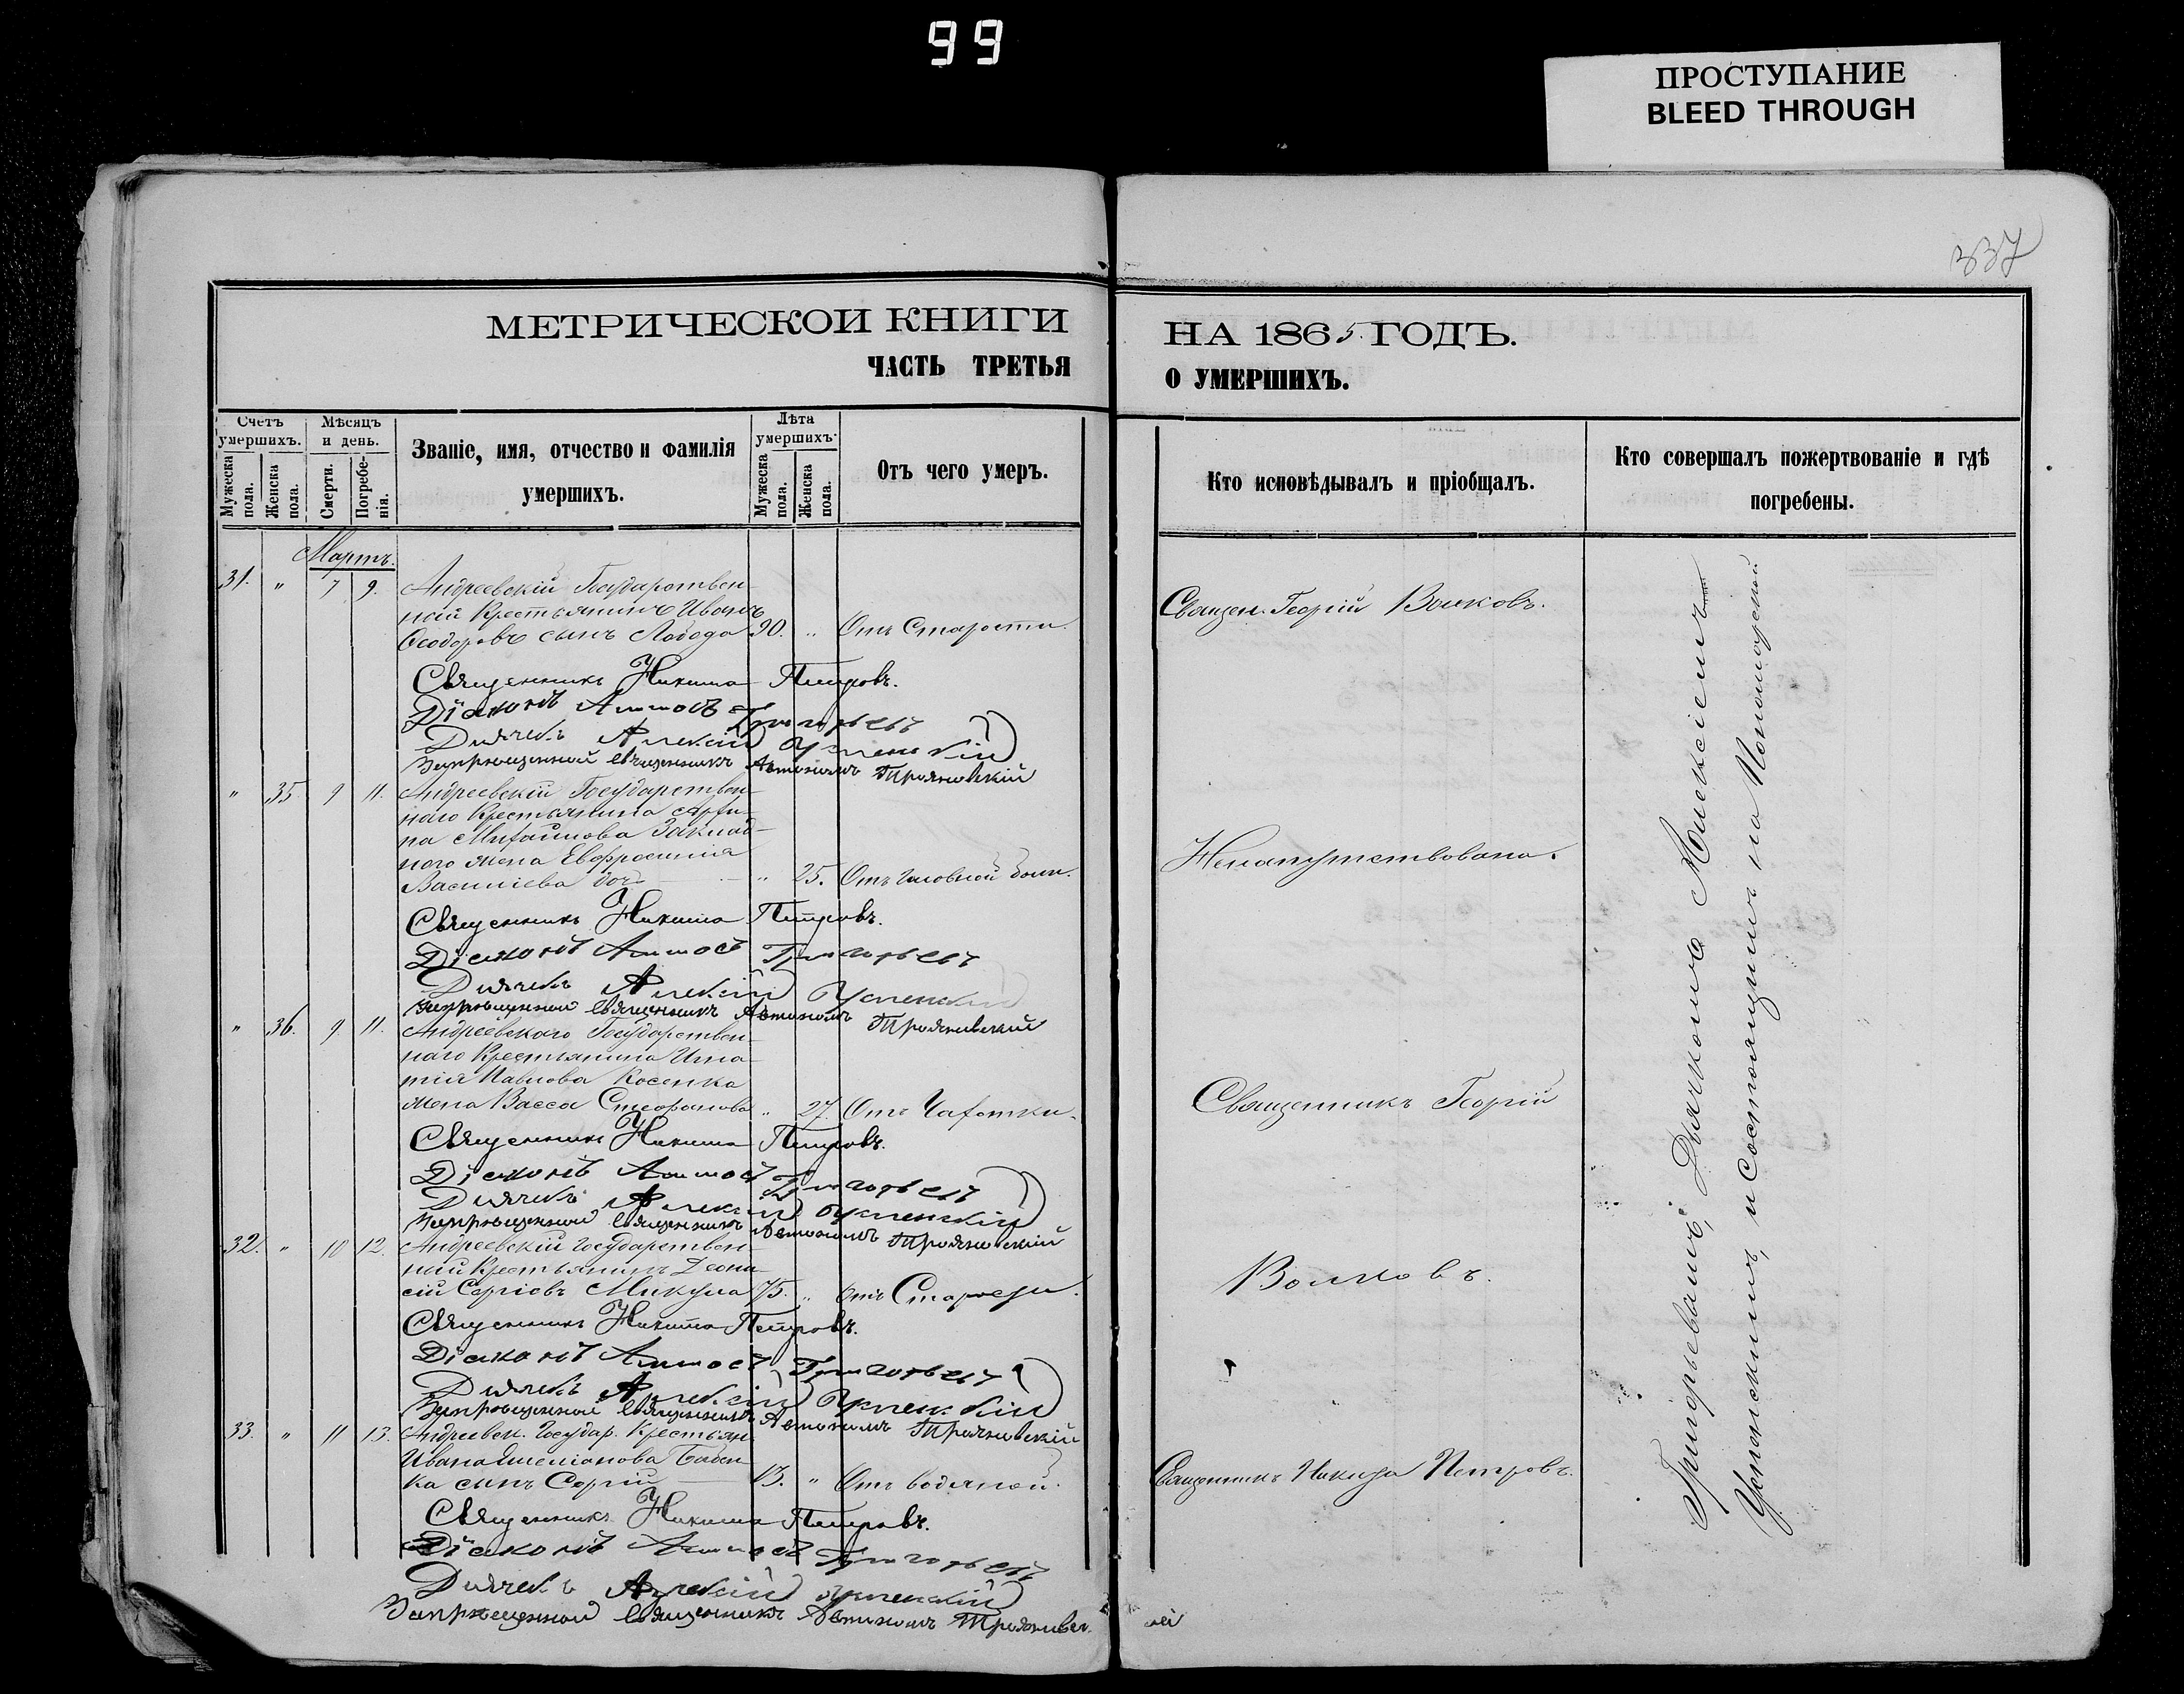 99
ПРОСТУПАНИЕ
BLEED THROUGH
337
МЕТРИЧЕСКОИ КНИГИ
ЧАСТЬ ТРЕТЬЯ
НА 1865 ГОДЪ.
О УМЕРШИХЪ.
Счетъ умершихъ.
Мужеска пола.
Женска пола.
Мѣсяцъ и день.
Смерти.
Погребе-
нія.
Званіе, имя, отчество и фамилія
умершихъ.
Лѣта умершихъ.
Мужеска пола.
Женска пола.
Отъ чего умеръ.
Кто исповѣдывалъ и пріобщалъ.
Кто совершалъ пожертвованіе и гдѣ
погребены.
Мартъ.
31. " 7 9. Андреевскій Государствен-
ный Крестьянинъ Иванъ
Ѳеодоровъ сынъ Лобода 90. " Отъ Старости.
Священ. Георгій Волковъ.
Священникъ Никита Петровъ.
Діаконъ Григорьевъ
Дьячекъ Алексій Успенскій
Запрещенной священникъ Автономъ Трояновскій
" 35. 9 11. Андреевскій Государствен-
наго Крестьянина
на Михайлова
ного жена Евфросинія
Василіева дочь " 25. Отъ Головной боли.
Ненапутствована.
Священникъ Никита Петровъ.
Діаконъ Григорьевъ
Дьячекъ Алексій Успенскій
Запрещенной священникъ Автономъ Трояновскій
" 36. 9 11. Андреевскаго Государствен-
наго Крестьянина Игна-
тія Павлова Косенка
жена Васса Стефанова " 27. Отъ Чахотки.
Священникъ Георгій
Священникъ Никита Петровъ.
Діаконъ Григорьевъ
Дьячекъ Алексій Успенскій
Запрещенной священникъ Автономъ Трояновскій
32. " 10 12. Андреевскій Государствен-
ный Крестьянинъ Діони-
сій Сергіевъ Микула 75. " отъ Старости.
Волковъ.
Священникъ Никита Петровъ.
Діаконъ Григорьевъ
Дьячекъ Алексій Успенскій
Запрещенной священникъ Автономъ Трояновскій
33. " 11 13. Андреевск. Государ. Крестьян.
Ивана Емеліанова Бабен-
ка сынъ Сергій 13. " Отъ водяной.
Священникъ Никита Петровъ.
Священникъ Никита Петровъ.
Діаконъ Григорьевъ
Дьячекъ Алексій Успенскій
Запрещенной священникъ Автономъ Трояновск
ій
Григорьевымъ, Дьячкомъ Алексіемъ
Успенскимъ, и Состоящимъ на Пономарской